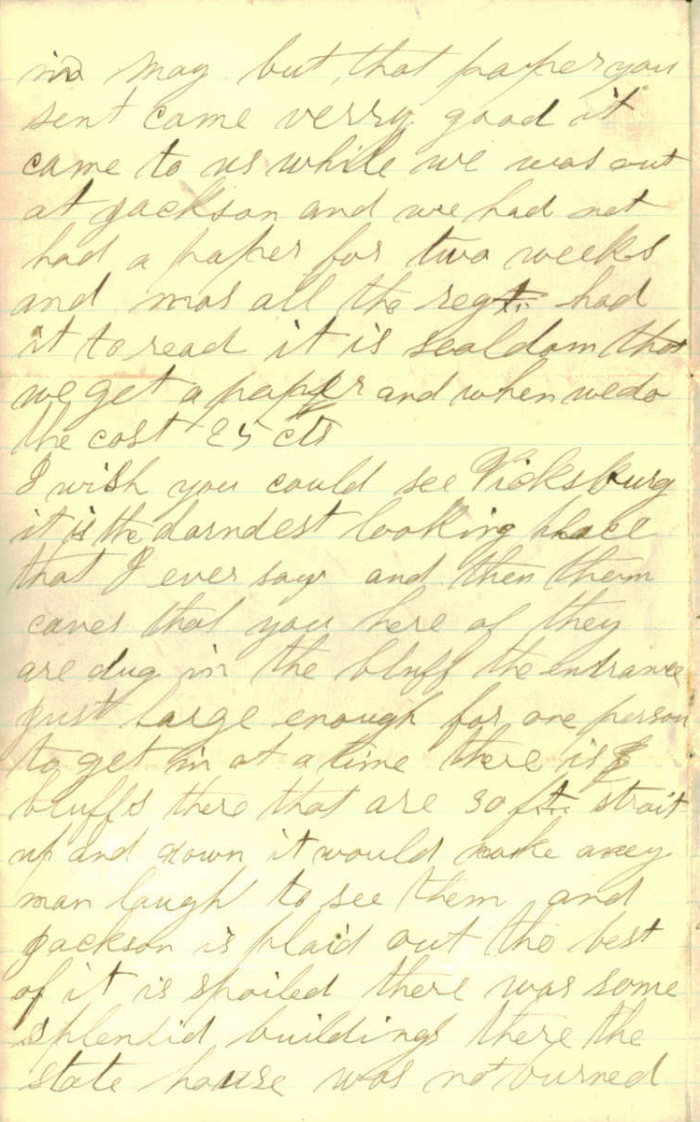 in May but that paper you
sent came verry good it
came to us while we was out
at Jackson and we had not
had a paper for two weeks
and mos all the regt. had
it to read it is sealdom that
we get a paper and when we do
the cost 25 cts
I wish you could see Vicksburg
it is the darndest looking place
that I ever say and then them
caves that you here of they
are dug in the bluff the entrance
just large enough for one person
to get in at a time there is
bluffs there that are 30 ft. strait
up and down it would make aney
man laugh to see them and
Jackson is plaid out the best
of it is spoiled there was some
splendid buildings there the
state house was not burned